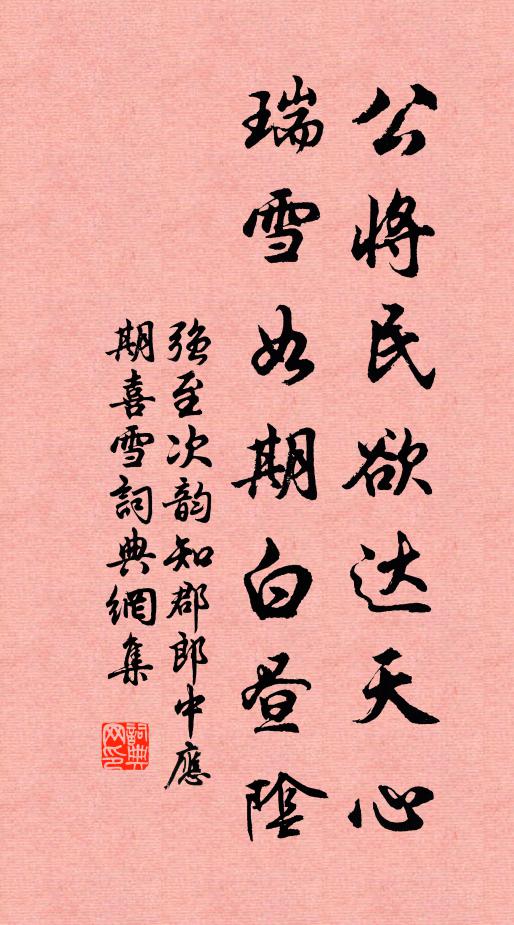 公将民欲达天心
瑞雪如期白昼陰
強至次韵知郡郎中應
期喜雪詞典網集
詞典
网印